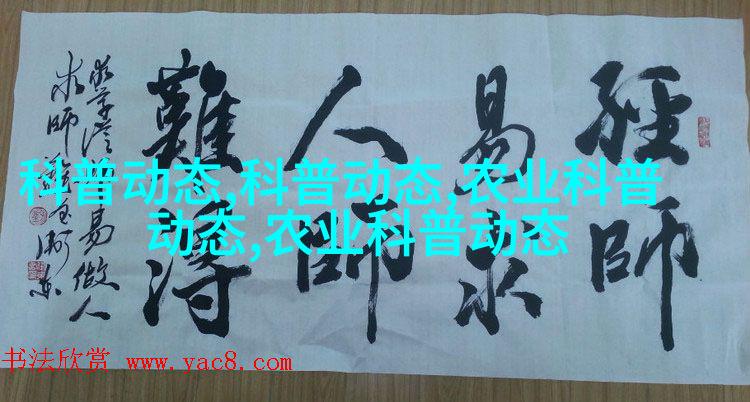 經師
易求
人師
難得
易做人
求師
科普动态,科普动态,农业科普
动态,农业科普动态
书法欣赏 www.yac8.com